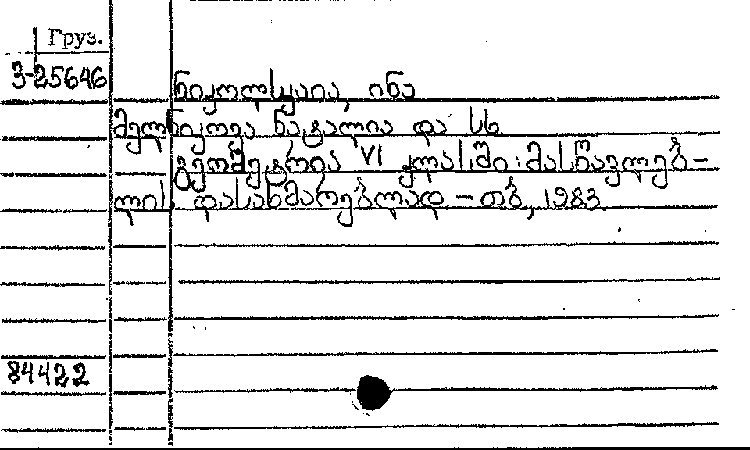 Груз.
3-25646
ნიკოლსკაია, ინა
მელნიკოვა ნატალია და სხ
გეომეტრია VI კლასში: მასწავლებ-
ლის დასახმარებლად - თბ, 1983
84422